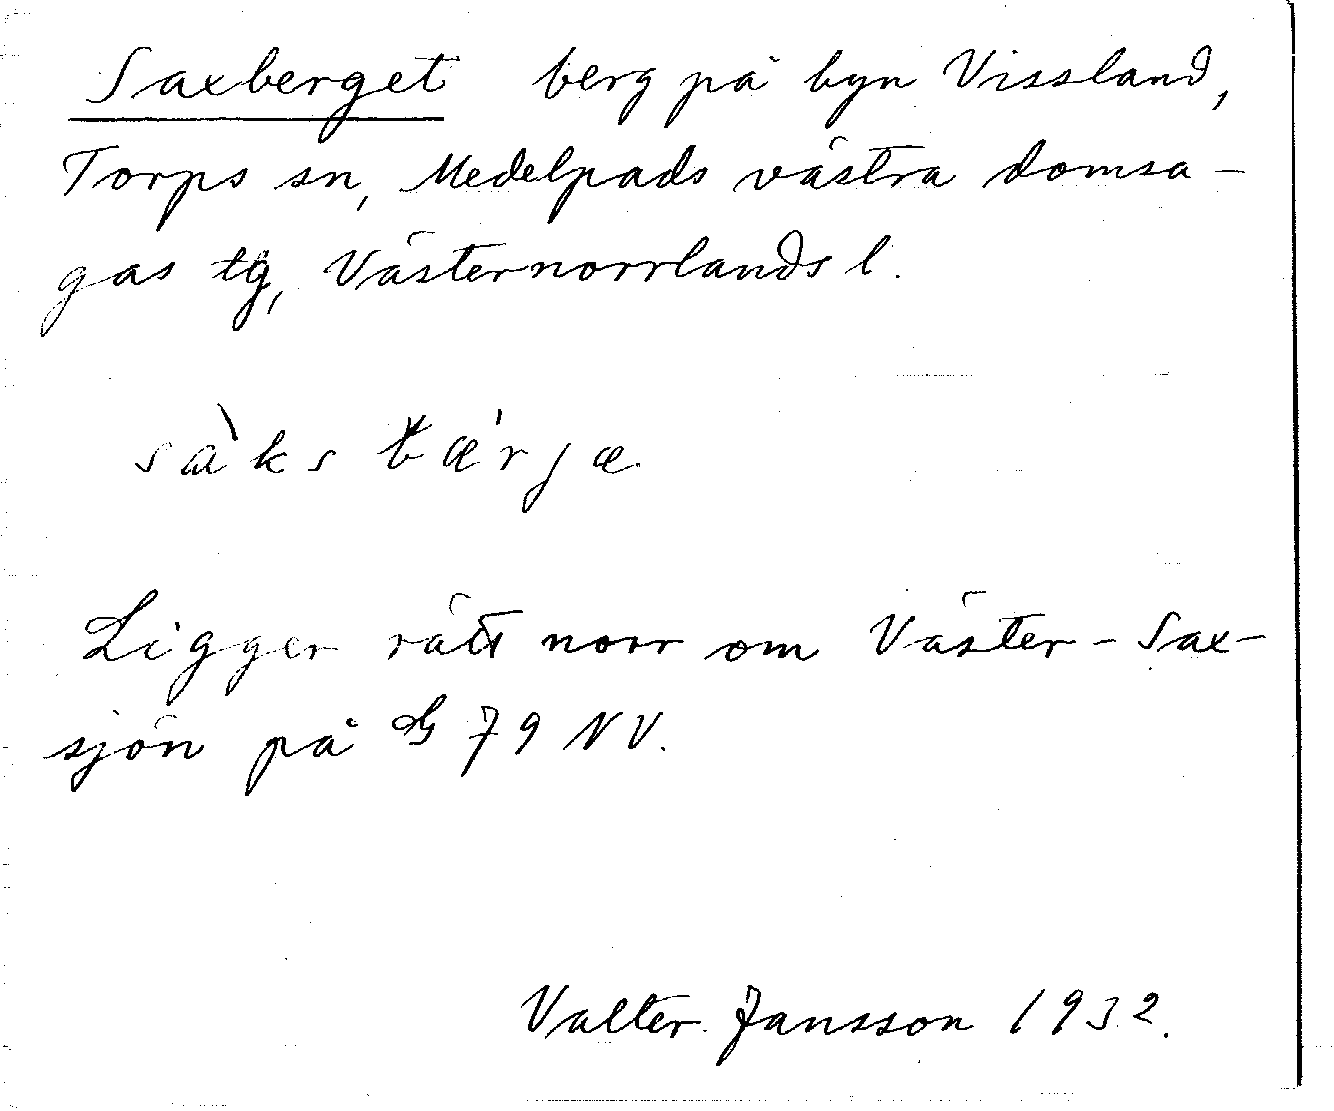 Saxberget berg på byn Vissland,
Torps sn, Medelpads västra domsa-
gas tg, Västernorrlands l.
sàks bær'jæ.
Ligger rätt norr om Väster-Sax-
sjön på G 79 NV.
Valter Jansson 1932.